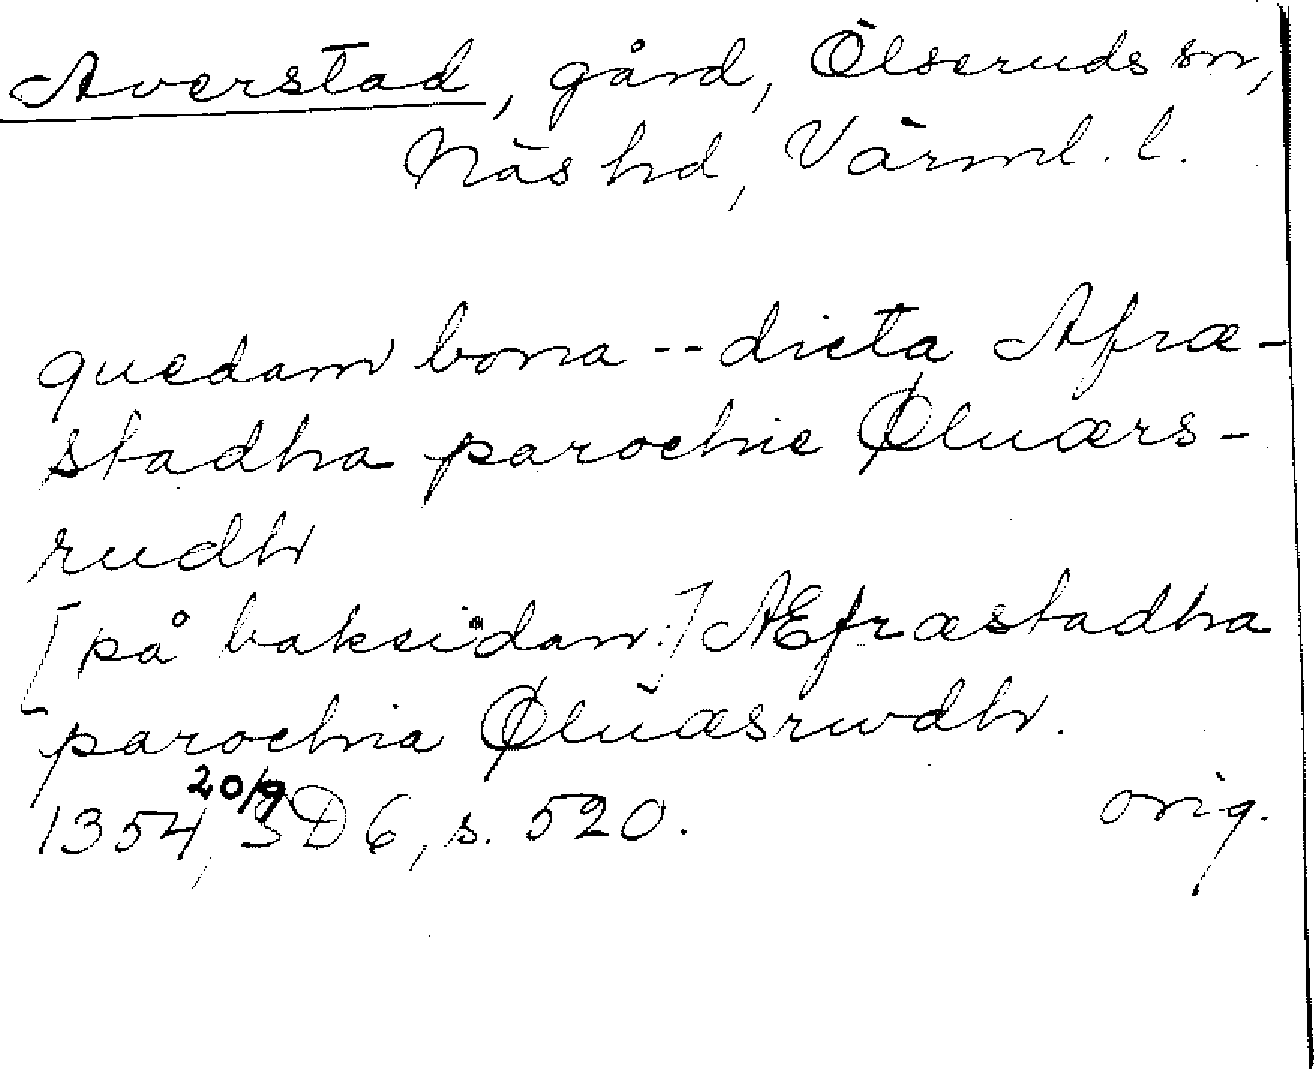 Averstad, gård, Ölseruds sn,
Näs hd, Värml. l.
quedam bona -- dicta Afræ-
stadha parochie Øluærs-
rudh
[på baksidan:] Æfræstadha
parochia Øluæsrwdh.
1354 20/9, SD 6, s. 520. orig.